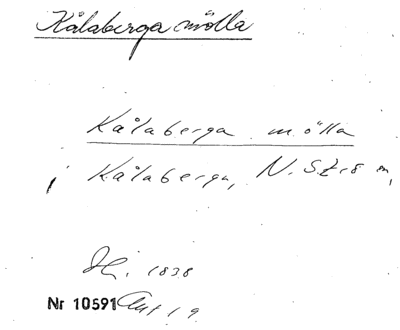 Kålaberga mölla
Kålaberga mölla
i Kålaberga, N. Strö sn,
1838
Nr 10591